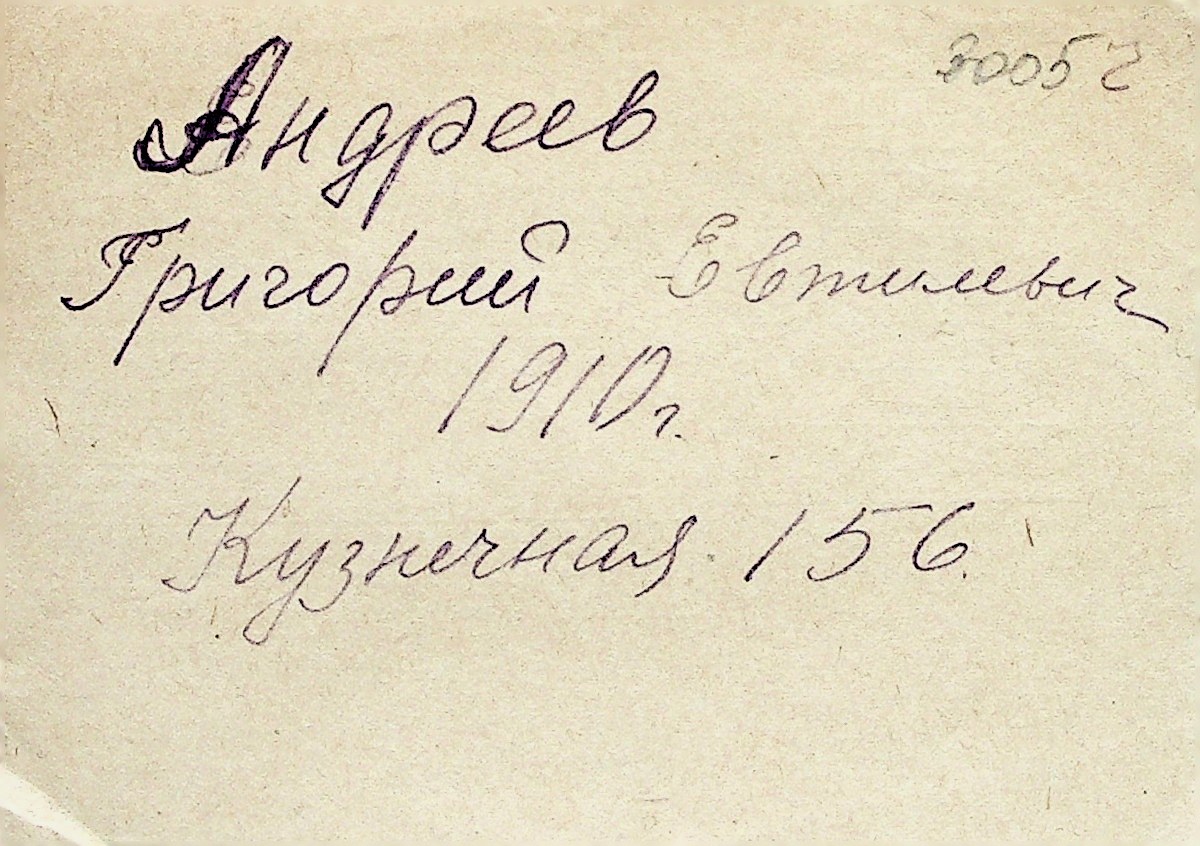 Андреев
Григорий Евтиевич
1910 г.
Кузнечная 156.